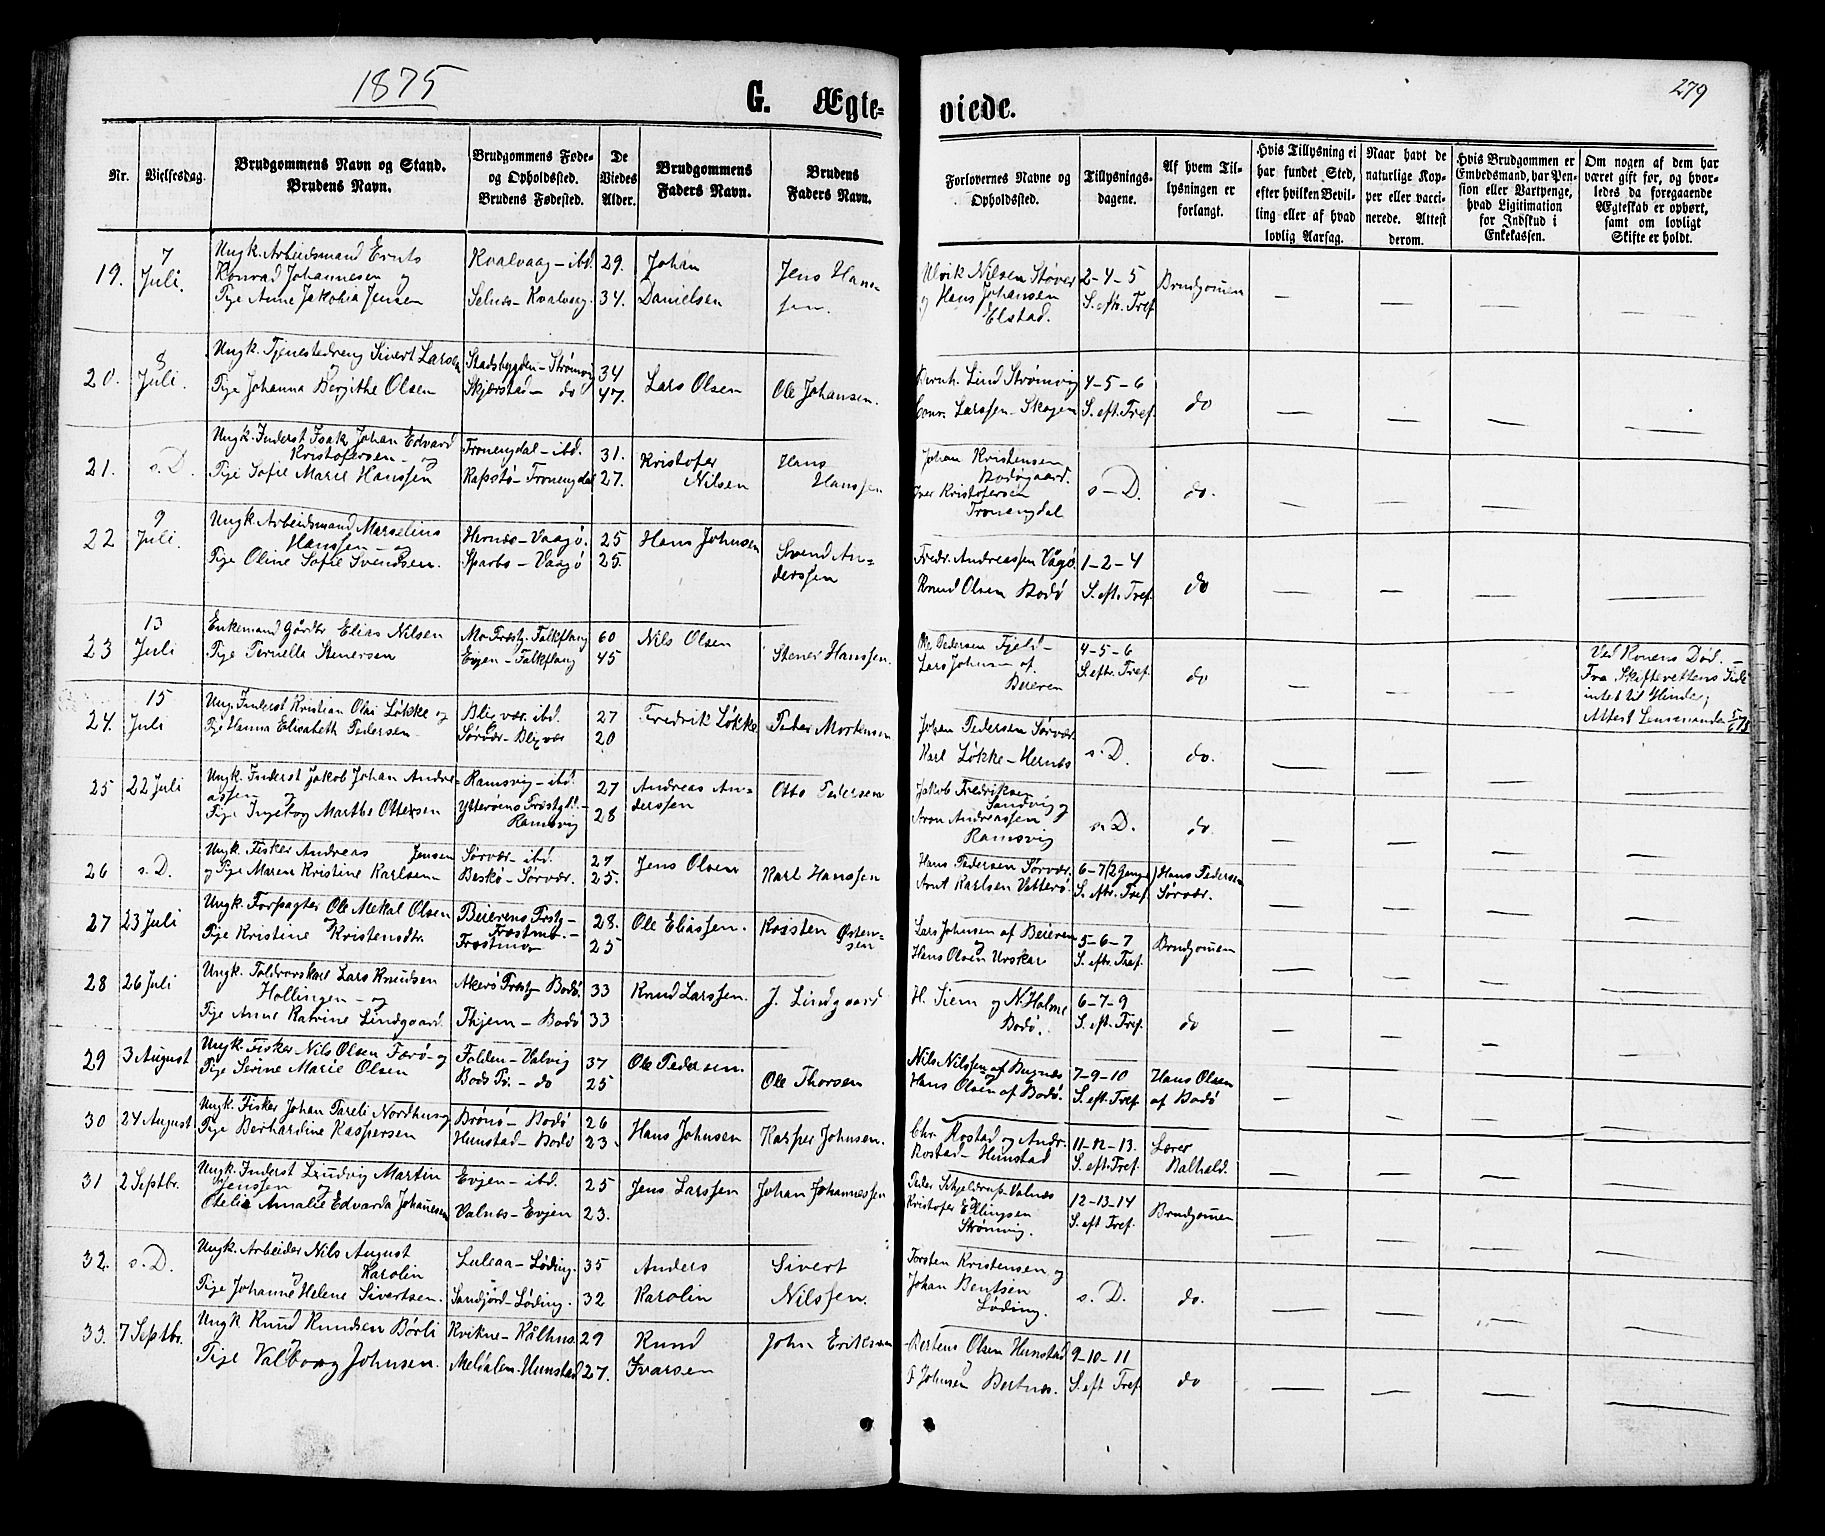 1875
G. Ægte-
viede.
279
Nr.
Vielsesdag.
Brudgommens Navn og Stand.
Brudens Navn.
Brudgommens Føde-
og Opholdssted.
Brudens Fødested.
De
Viedes
Alder.
Brudgommens
Faders Navn.
Brudens
Faders Navn.
Forlovernes Navne og
Opholdssted.
Tillysnings-
dagene.
Af hvem Til-
lysningen er
forlangt.
Hvis Tillysning ei
har fundet Sted,
efter hvilken Bevil-
ling eller af hvad
lovlig Aarsag.
Naar havt de
naturlige Kop-
per eller vacci-
nerede. Attest
derom.
Hvis Brudgommen er
Embedsmand, har Pen-
sion eller Vartpenge,
hvad Legitimation
for Indskud i
Enkekassen.
Om nogen af dem har
været gift før, og hvor-
ledes da foregaaende
Ægteskab er ophørt,
samt om lovligt
Skifte er holdt.
19. 7 Juli.
Ungk. Arbeidsmand Ernts
Konrad Johannesen og
Pige Anne Jakobia Jensen
Kvalvaag - ibd. 29.
Selnes - Kvalvaag. 34.
Johan
Danielsen
Jens Hans-
sen.
Ulrik Nilsen Støver
og Hans Johansen
Elstad.
2-4-5
S. eftr. Tref.
Brudgomen
20. 8 Juli.
Ungk. Tjenestedreng Sivert Larsen
og
Pige Johanna Bergithe Olsen
Stadsbygden - Strømvig 34
Skjærstad - do 47.
Lars Olsen
Ole Johansen.
Bernh. Lind Strømvig
Conr. Larssen - Skagen
4-5-6
S. eft. Tref.
do
21. s. D.
Ungk. Inderst Isak Johan Edvard
Kristofersen - og
Pige Sofie Marie Hanssen
Tronengdal - ibd. 31.
Kapstø - Tronengdal 27.
Kristofer
Nilsen
Hans
Hanssen
Johan Kristensen
Bodøgaard.
Iver Kristofersen
Tronengdal
s - D.
do.
22 9 Juli.
Ungk. Arbeidsmand Marselius
Hanssen - og
Pige Oline Sofie Svendsen.
Hernæs - Vaagø. 25
Sparbo - Vaagø 25.
Hans Johnsen
Svend An-
derssen
Fredr. Andreassen Vågø
Knud Olsen Bodø
1-2-4
S. eft. Tref.
do
23 13 Juli
Enkemand Gårdbr Elias Nilsen
Pige Pernelle Stenersen
Mo Præstg. Falkflaug 60
Evjen - Falkflaug 45
Nils Olsen
Stener Hanssen.
Ole Pedersen Fjeld -
Lars Johns- af
Beieren
4-5-6
S. eftr. Tref.
do
Ved Konens Død. -
Fra Skifterettens Side
intet til Hinder,
Attest Lensmanden 5/6 75
24. 15 Juli
Ung. Inderst Kristian Olai Løkke og
Pige Hanna Elisabeth Pedersen
Bligvær. ibd. 27
Sørvær - Bligvær 20
Fredrik Løkke
Peder Mortensen
Johan Pedersen Sørvær.
Karl Løkke - Hernæs
s. D.
do.
25 22 Juli
Ungk. Inderst Jakob Johan Andre-
assen og
Pige Ingeborg Marthe Ottersen
Ramsvig - ibd. 27
Ytterøens Præstgld. -
Ramsvig 28
Andreas An-
derssen
Otto Pedersen
Jakob Fredriksen
Sandvig og
Aron Andreassen
Ramsvig
s. D.
do.
26 s. D.
Ungk. Fisker Andreas Jensen
og Pige Maren Kristine Karlsen -
Sørvær - ibd. 27
Beskø - Sørvær. 25.
Jens Olsen
Karl Hanssen
Hans Pedersen Sørvær.
Arnt Karlsen Vetterø.
6-7/2 Gange
S. eftr. Tref.
Hans Pedersen
Sørvær.
27 23 Juli
Ungk. Forpagter Ole Mekal Olsen
og
Pige Kristine Kristensdtr.
Beierens Prstg - 28.
Præstmo. -
Præstmo 25
Ole Eliassen.
Kristen Østen-
sen
Lars Johnsen af Beieren
og
Hans Olsen Urskar
5-6-7
S. eftr. Tref.
Brudgomen
28 26 Juli
Ungk. Toldrorskarl Lars Knudsen
Hollingen - og
Pige Anne Katrine Lindgaard.
Akerø Præstg - Bodø. 33
Thjem - Bodø 33
Knud Larssen.
J. Lindgaard
H. Siem og N. Holme
Bodø.
6-7-9
S. eft. Tref.
do
29 3 August
Ungk. Fisker Nils Olsen Færø - og
Pige Serine Marie Olsen
Folden - Valvig 37
Bodø Pr. - do 25
Ole Pedersen
Ole Thorsen
Nils Nilssen af Bugnæs
og
Hans Olsen af Bodø.
7-9-10
S. eft. Tref
Hans Olsen
af Bodø
30 24 August
Ungk. Fisker Johan Pareli Nordhus og
Pige Berhardine Kaspersen
Brønø - Bodø 26
Hunstad - Bodø 23.
Hans Johnsen
Kasper Johnsen.
Chr. Rostad og Andr.
Rostad - Hunstad
11-12-13.
S. eft. Tref.
Lærer
Balheld.
31 2 Septbr.
Ungk. Inderst Ludvig Martin
Jenssen og
Otelie Amalie Edvarda Johanesen
Evjen - ibd. 25
Valnes - Evjen 23.
Jens Larssen
Johan Johannessen
Peder Schjeldrup - Valnæs
Kristofer Ellingsen
Strømvig.
12-13-14
S. eft Tref.
Brudgomen
32. s. D.
Ungk. Arbeider Nils August
og Karolin
Pige Johanne Helene Sivertsen.
Luleaa - Løding. 35
Sandjord - Løding. 32
Anders
Karolin
Sivert
Nilssen.
Torsten Kristensen og
Johan Bentsen
Løding.
s. D.
do.
33. 7 Septbr.
Ungk Knud Knudsen Børli
og
Pige Valborg Johnsen.
Kvikne - Kålhus 29
Meldalen - Hunstad 27.
Knud
Ivarsen
John Eriksen
Mortens Olsen Hunstad
og
F Johnsen Bertnæs.
9-10-11
S. eft Tref.
do